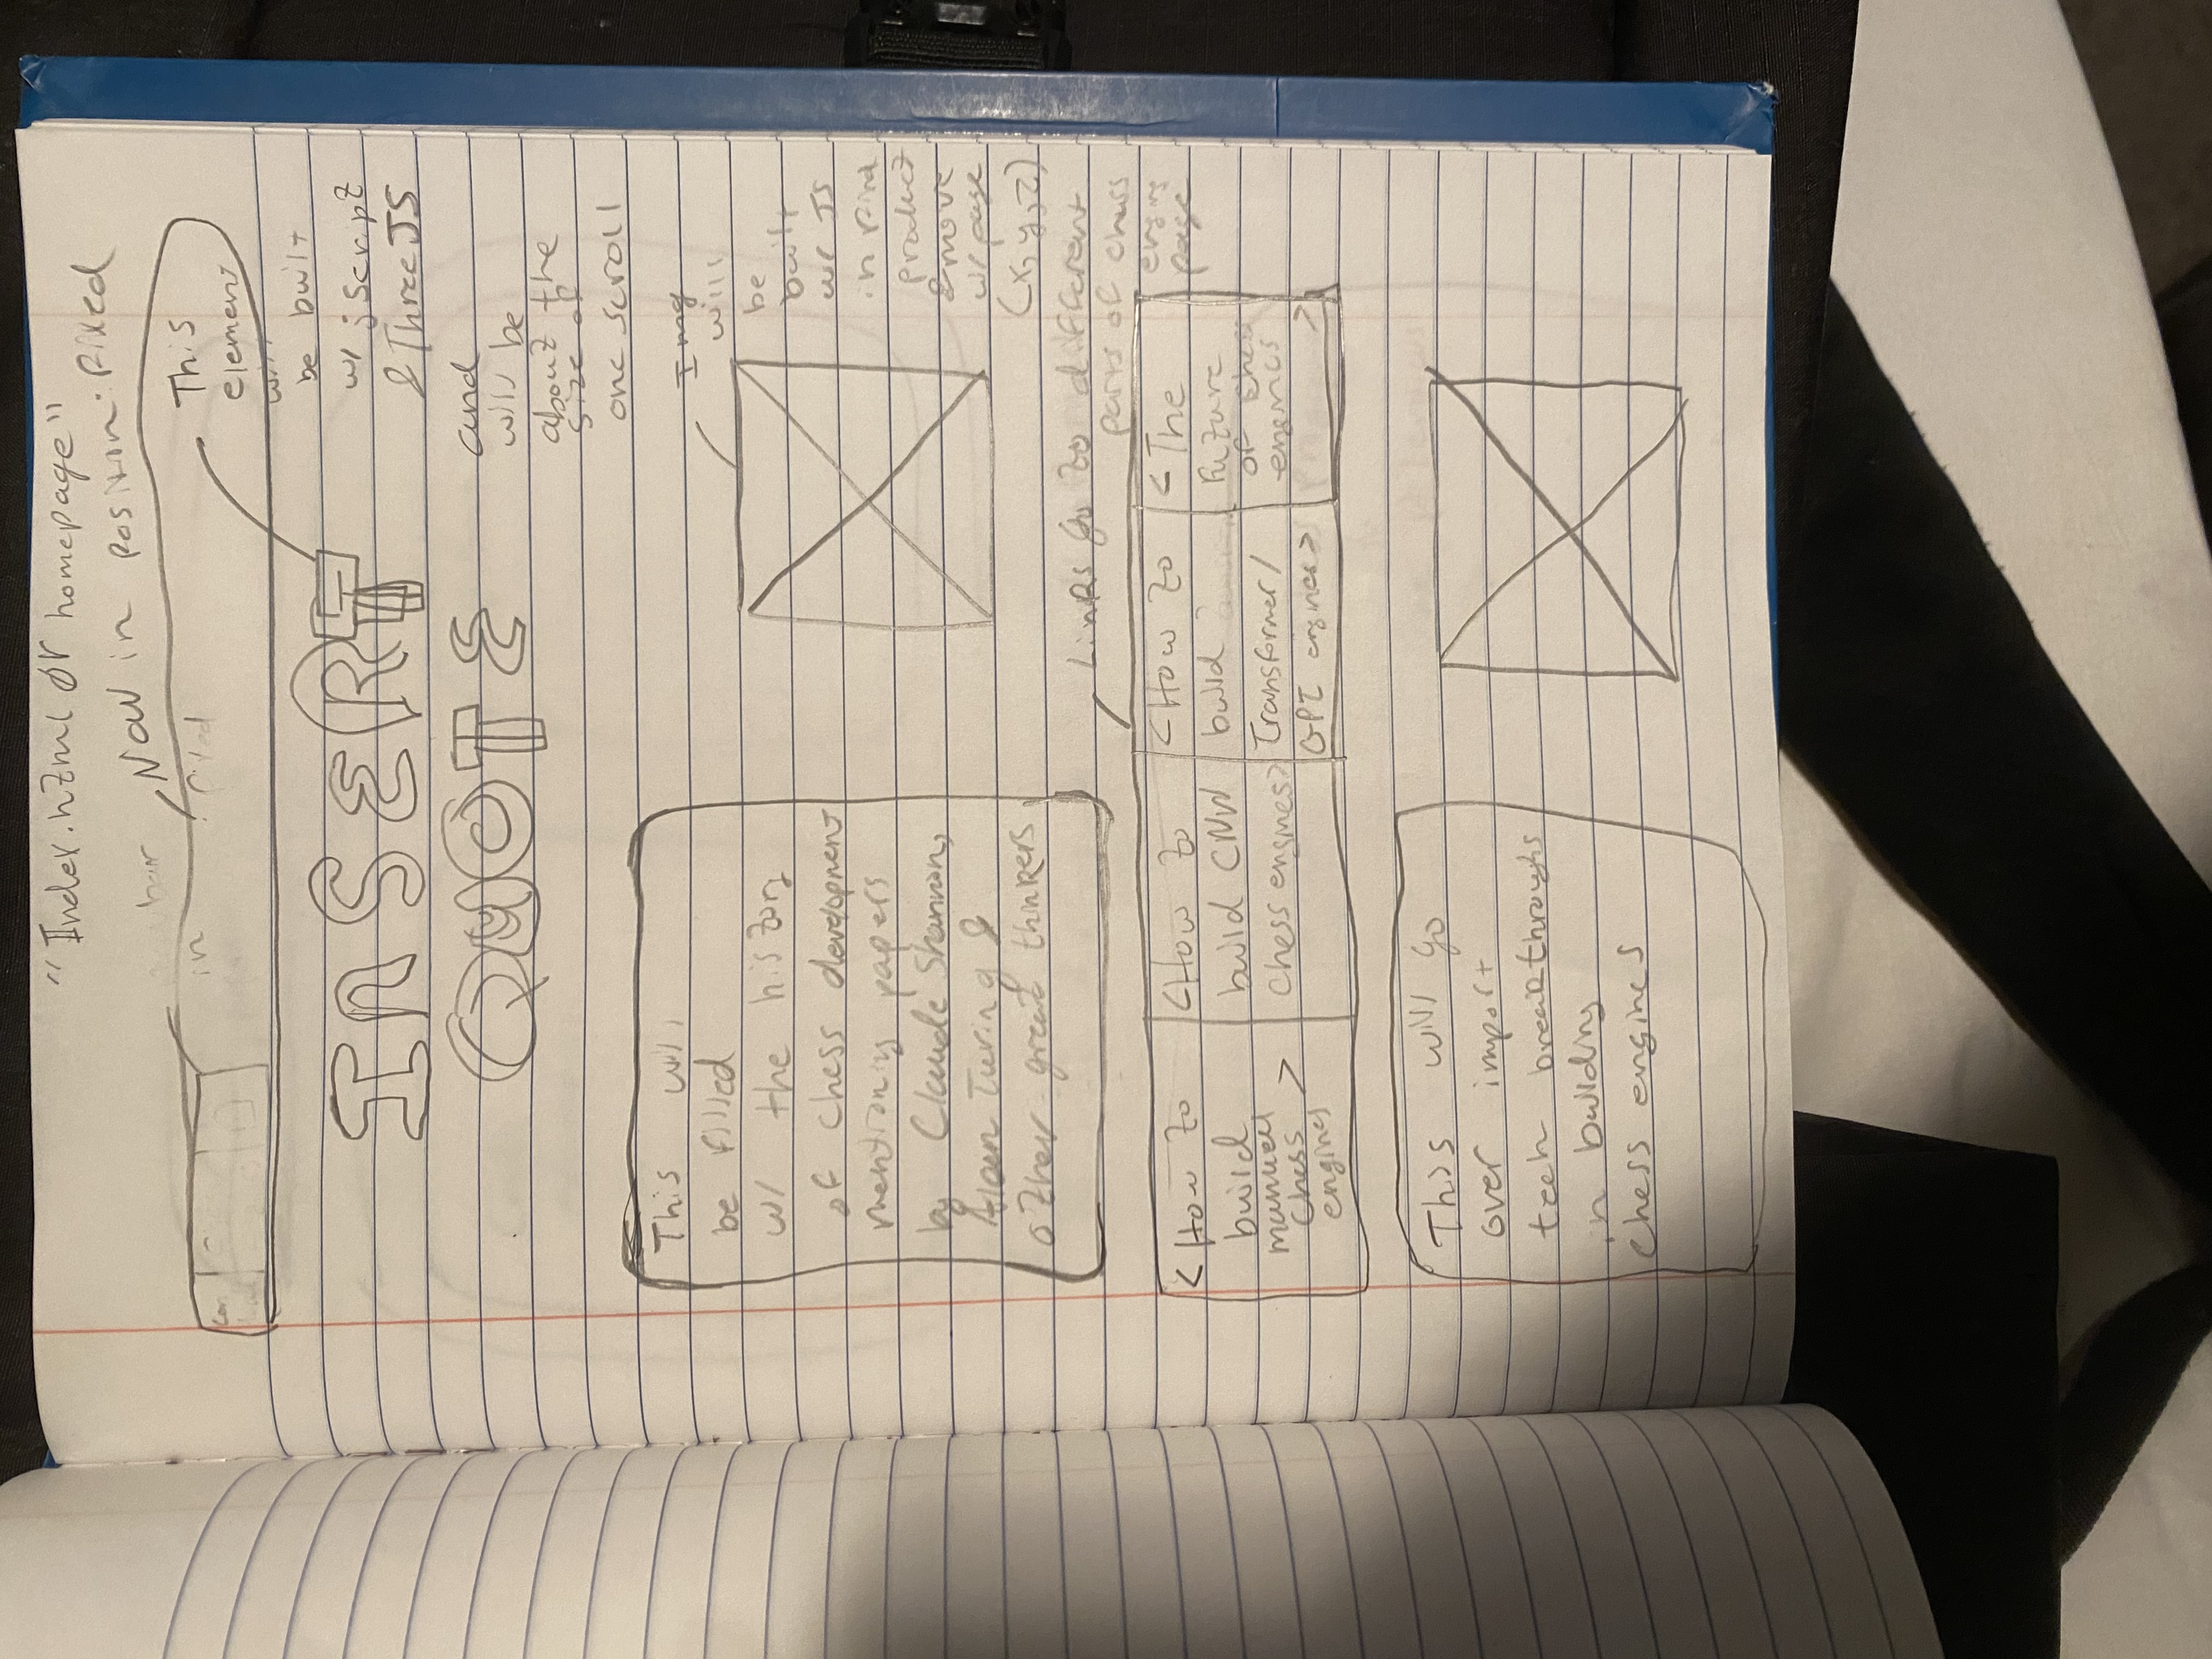 "Index.html or homepage"
Nav in position: fixed
bar
in
This
element
will
be built
w/ jScript
& ThreeJS
and
will be
about the
size of
one scroll
INSERT
QUOTE
This will
be filled
w/ the history
of chess development
mentioning papers
by Claude Shannon,
Alan Turing &
other great thinkers
Img
will
be
built
w/ JS
in final
product
& move
w/ page
(x, y, z)
Links go to different
parts of chess
engine
page
< How to
build
manual
chess
engines >
< How to
build CNN
chess engines >
< How to
build
Transformer/
GPT engines >
< The
Future
of chess
engines
>
This will go
over import
tech breakthroughs
in building
chess engines